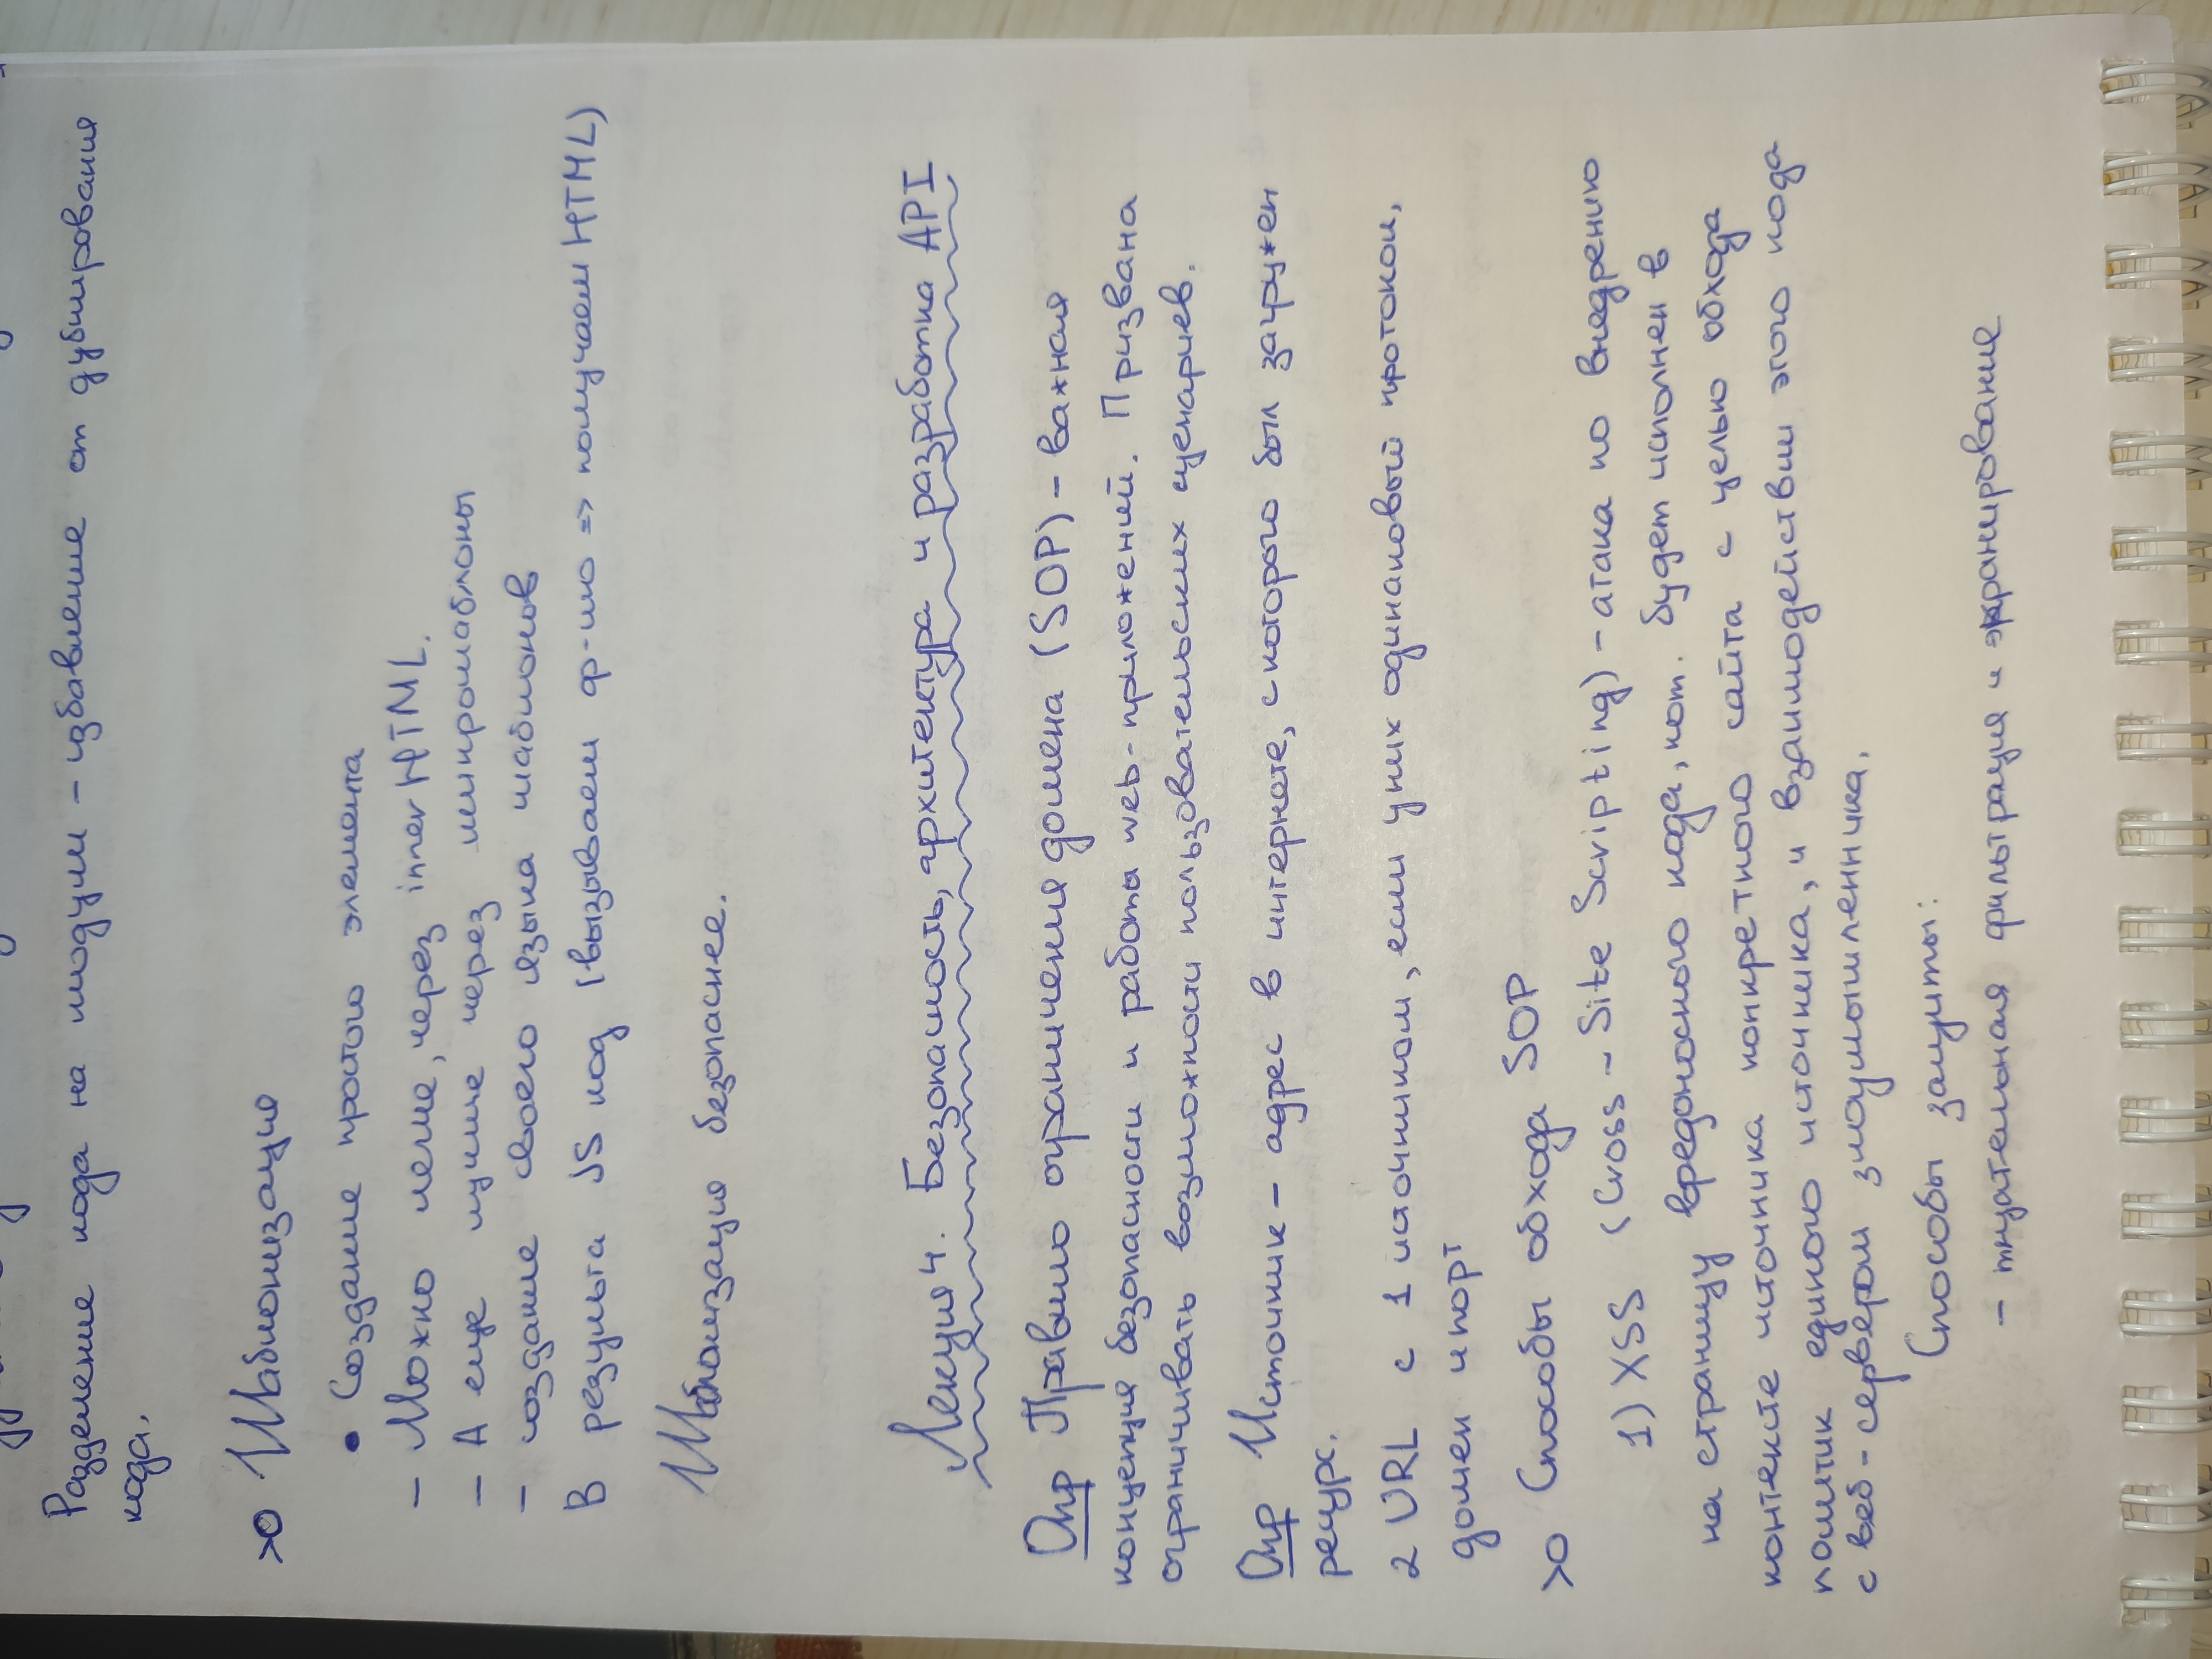 Разделение кода на модули – избавление от дублирования
кода.
>о Шаблонизация
• Создание простого элемента
– Можно легче, через innerHTML.
– А еще лучше через микрошаблоны
– создание своего языка шаблонов
В результа JS код (вызываем ф-ию => получаем HTML)
Шаблонизация безопаснее.
Лекция 4. Безопасность, архитектура и разработка API
Опр Правило ограничения домена (SOP) – важная
концепция безопасности и работы web-приложений. Призвана
ограничивать возможности пользовательских сценариев.
Опр Источник – адрес в интернете, с которого был загружен
ресурс.
2 URL с 1 источником, если у них одинаковый протокол,
домен и порт
>о Способы обхода SOP
1) XSS (Cross-Site Scripting) – атака по внедрению
на страницу вредоносного кода, кот. будет исполнен в
контексте источника конкретного сайта с целью обхода
политик единого источника, и взаимодействии этого кода
с веб-сервером злоумышленника.
Способы защиты:
– тщательная фильтрация и экранирование